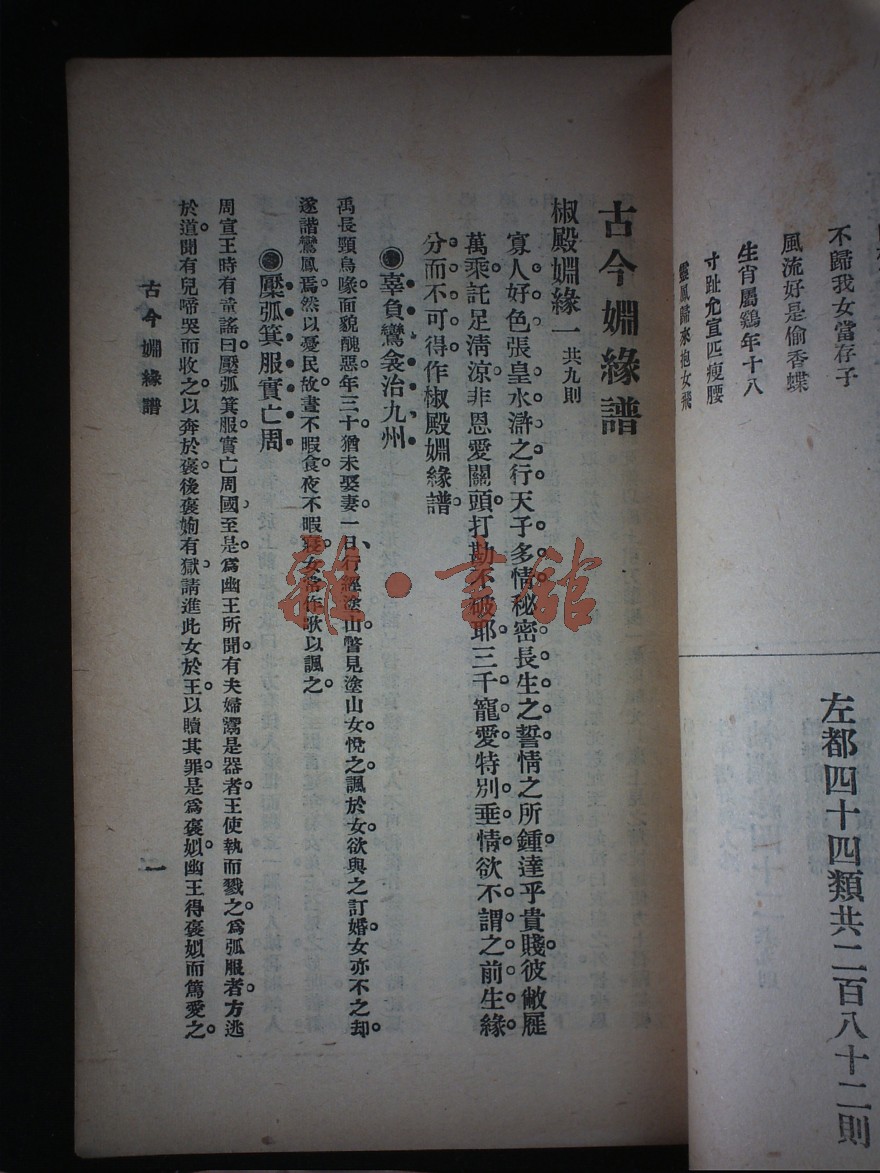 不歸我女當存子
風流好是偷香蝶
生肖屬鷄年十八
寸趾允宜匹瘦腰
靈鳳簫來抱女飛
左都四十四類共二百八十二則
古今婣緣譜
椒殿婣緣一 共九則
寡人好色張皇水滸之行天子多情秘密長生之誓情之所鍾達乎貴賤彼敝屣
萬乘託足淸涼非恩愛關頭打勘不破耶三千寵愛特別垂情欲不謂之前生緣
分而不可得作椒殿婣緣譜
辜負鸞衾治九州
禹長頸鳥喙面貌醜惡年三十猶未娶妻一日行經塗山瞥見塗山女悅之諷於女欲與之訂婚女亦不之却
遂諧鸞鳳焉然以憂民故晝不暇食夜不暇寢女嘗作歌以諷之
檿弧箕服實亡周
周宣王時有童謠曰檿弧箕服實亡周國至是爲幽王所聞有夫婦鬻是器者王使執而戮之爲弧服者方逃
於道聞有兒啼哭而收之以奔於褒後褒姁有獄請進此女於王以贖其罪是爲褒姒幽王得褒姒而篤愛之
古今婣緣譜
一
雜·書館